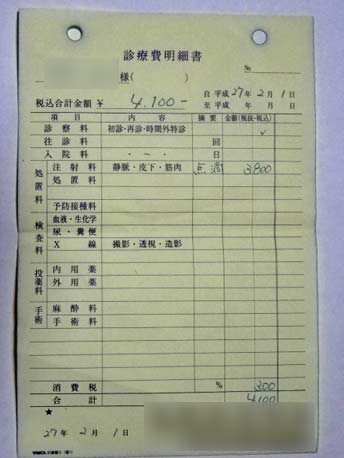 診療費明細書
№
様( )
自 平成 27 年 2 月 1 日
税込合計金額 ¥ 4,100-
至 平成 年 月 日
項 目 内 容 摘 要 金額(税抜・税込)
診 察 料 初診・再診・時間外特診 ✓
往 診 料 回
入 院 料 ・ ~ ・ 日
処置料 注 射 料 静脈・皮下・筋肉 点滴 3800
処 置 料
予防接種料
検査料 血液・生化学
尿・糞便
X 線 撮影・透視・造影
投薬料 内 用 薬
外 用 薬
手術 麻 酔 料
手 術 料
消 費 税 % 300
合 計 4100
★
27 年 2 月 1 日